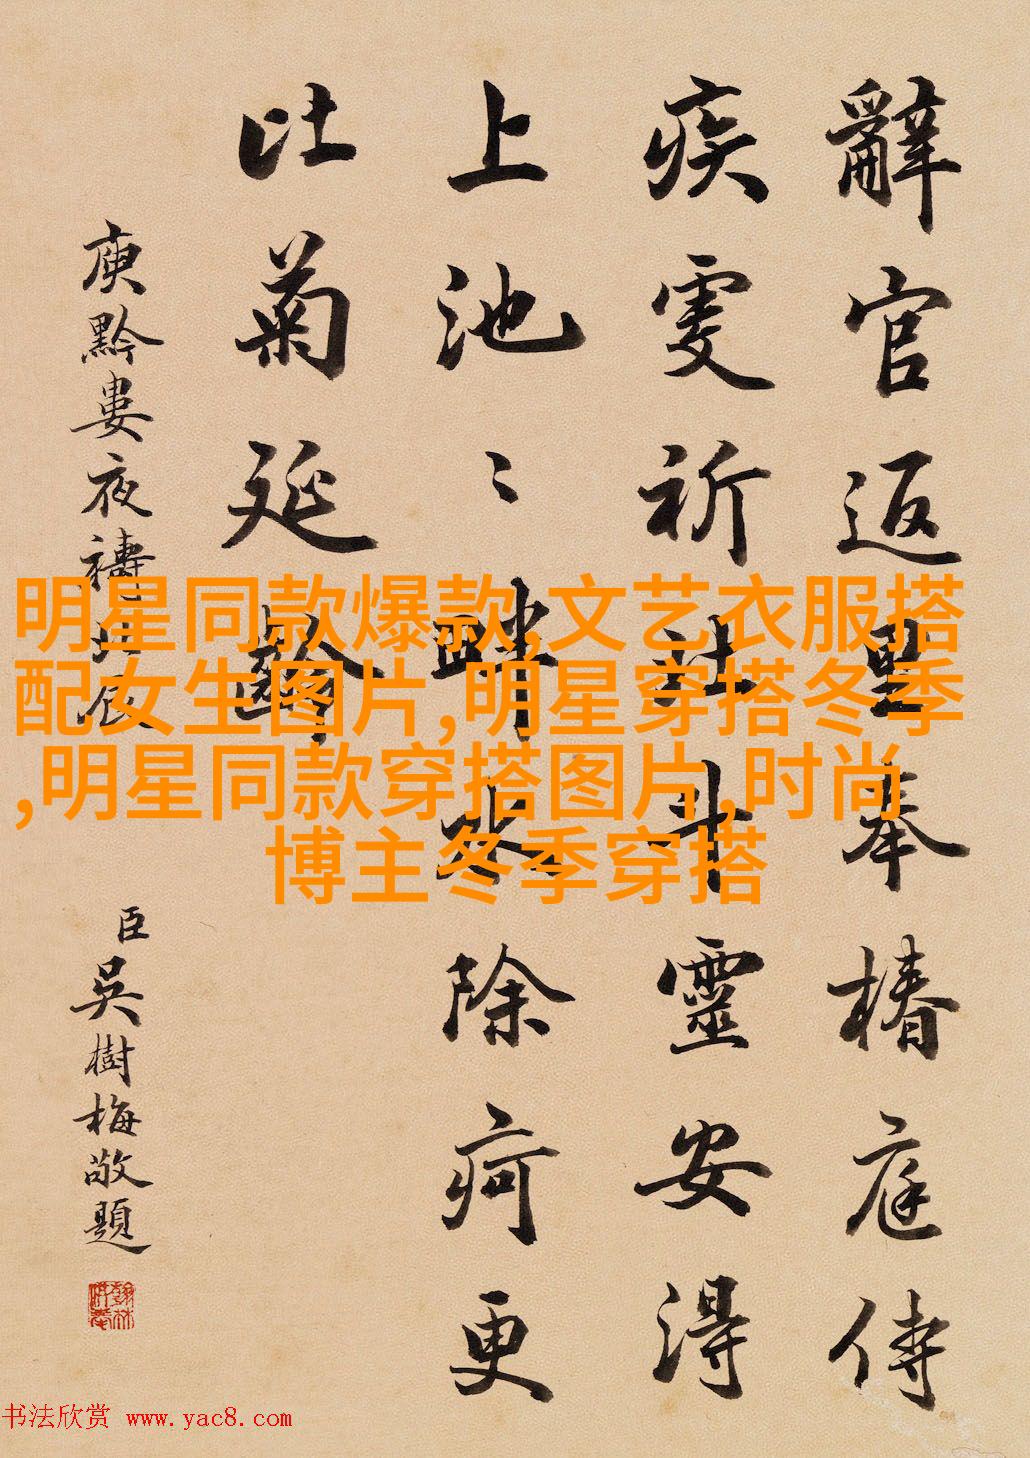 辭官返里奉椿庭侍
疾虔祈北斗靈安得
上池〻畔水除疴更
比菊延齡
庾黔婁夜禱北辰
臣吳樹梅敬題
明星同款爆款,文艺衣服搭
配女生图片,明星穿搭冬季
,明星同款穿搭图片,时尚
博主冬季穿搭
书法欣赏 www.yac8.com